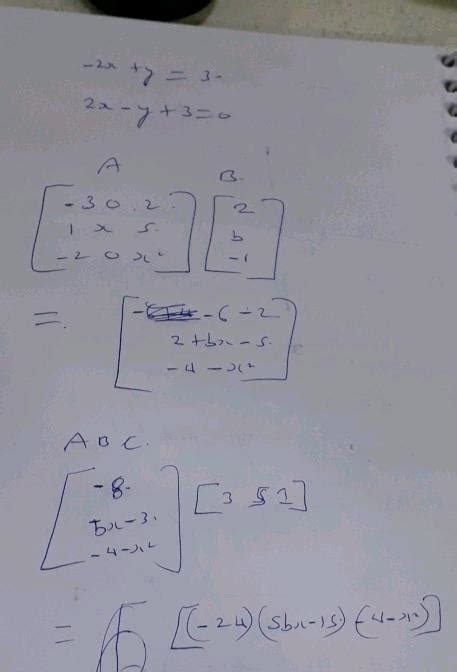 -2x + y = 3.
2x - y + 3 = 0
A B.
[-3 0 2] [2]
[1 x 5] [b]
[-2 0 x²] [-1]
= [- -6 -2]
[2 + bx - 5]
[-4 - x²]
A B C.
[-8] [3 5 1]
[bx - 3]
[-4 - x²]
= [(-24) (5bx-15) (-4-x²)]